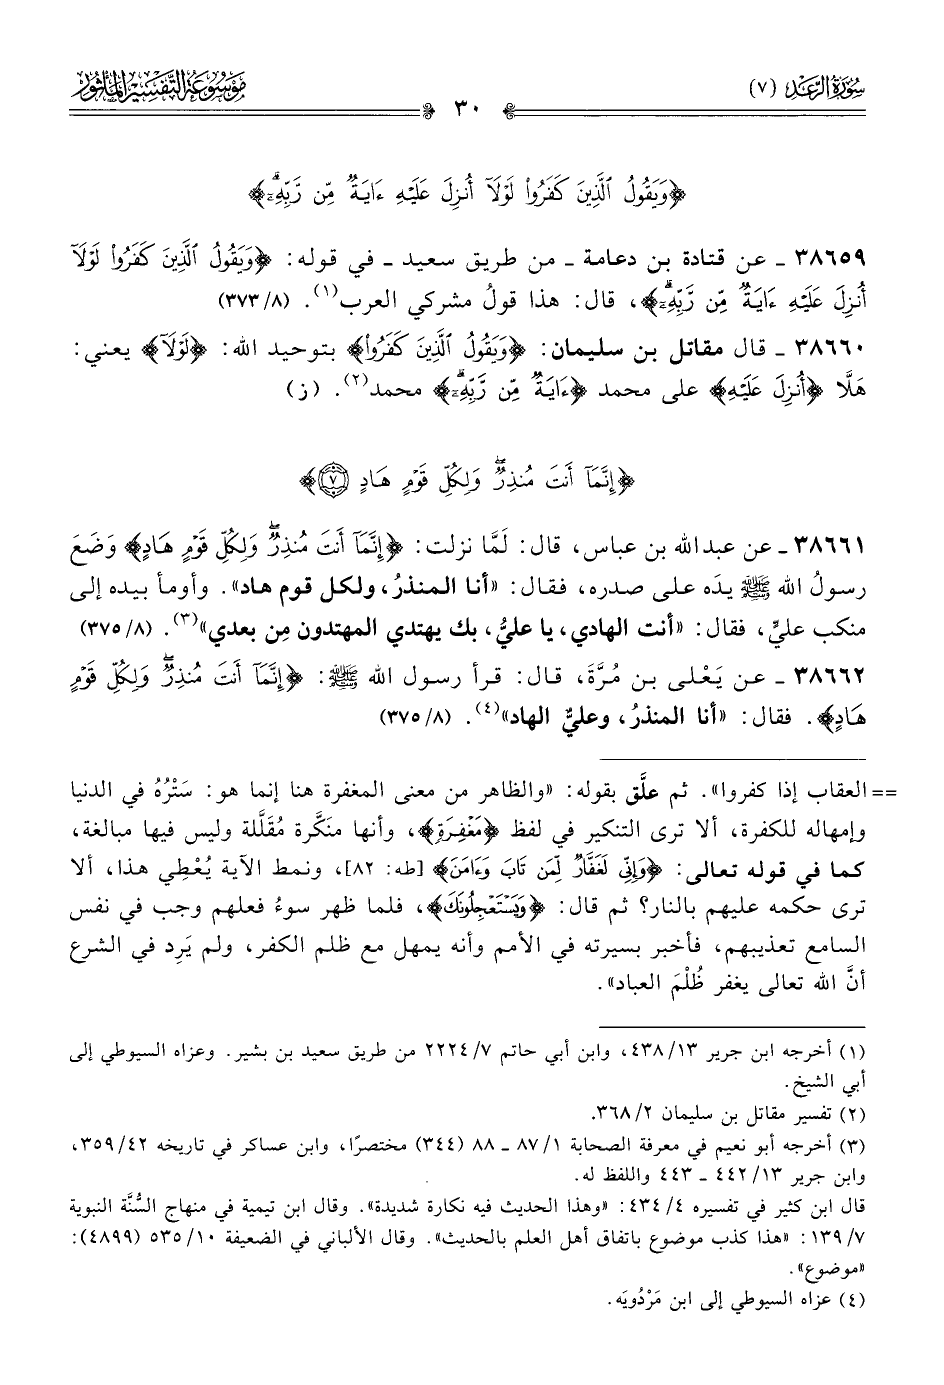 سُورَةُ الرَّعْدِ (٧)
٣٠
مَوْسُوعَةُ التَّفْسِيرِ المَأْثُورِ
﴿وَيَقُولُ ٱلَّذِينَ كَفَرُواْ لَوْلَآ أُنزِلَ عَلَيْهِ ءَايَةٌ مِّن رَّبِّهِۦٓۗ﴾
٣٨٦٥٩ ـ عن قتادة بن دعامة ـ من طريق سعيد ـ في قوله: ﴿وَيَقُولُ ٱلَّذِينَ كَفَرُواْ لَوْلَآ
أُنزِلَ عَلَيْهِ ءَايَةٌ مِّن رَّبِّهِۦٓۗ﴾، قال: هذا قولُ مشركي العرب(١). (٨/ ٣٧٣)
٣٨٦٦٠ ـ قال مقاتل بن سليمان: ﴿وَيَقُولُ ٱلَّذِينَ كَفَرُواْ﴾ بتوحيد الله: ﴿لَوْلَآ﴾ يعني:
هَلَّا ﴿أُنزِلَ عَلَيْهِ﴾ على محمد ﴿ءَايَةٌ مِّن رَّبِّهِۦٓۗ﴾ محمد(٢). (ز)
﴿إِنَّمَآ أَنتَ مُنذِرٌۖ وَلِكُلِّ قَوْمٍ هَادٍ ٧﴾
٣٨٦٦١ ـ عن عبدالله بن عباس، قال: لَمَّا نزلت: ﴿إِنَّمَآ أَنتَ مُنذِرٌۖ وَلِكُلِّ قَوْمٍ هَادٍ﴾ وَضَعَ
رسولُ الله ﷺ يدَه على صدره، فقال: «أنا المنذرُ، ولكل قوم هاد». وأومأ بيده إلى
منكب عليٍّ، فقال: «أنت الهادي، يا عليُّ، بك يهتدي المهتدون مِن بعدي»(٣). (٨/ ٣٧٥)
٣٨٦٦٢ ـ عن يَعْلى بن مُرَّةَ، قال: قرأ رسول الله ﷺ: ﴿إِنَّمَآ أَنتَ مُنذِرٌۖ وَلِكُلِّ قَوْمٍ
هَادٍ﴾. فقال: «أنا المنذرُ، وعليٌّ الهاد»(٤). (٨/ ٣٧٥)
== العقاب إذا كفروا». ثم علَّق بقوله: «والظاهر من معنى المغفرة هنا إنما هو: سَتْرُهُ في الدنيا
وإمهاله للكفرة، ألا ترى التنكير في لفظ ﴿مَغْفِرَةٍ﴾، وأنها منَكَّرة مُقَلَّلة وليس فيها مبالغة،
كما في قوله تعالى: ﴿وَإِنِّى لَغَفَّارٌ لِّمَن تَابَ وَءَامَنَ﴾ [طه: ٨٢]، ونمط الآية يُعْطِي هذا، ألا
ترى حكمه عليهم بالنار؟ ثم قال: ﴿وَيَسْتَعْجِلُونَكَ﴾، فلما ظهر سوءُ فعلهم وجب في نفس
السامع تعذيبهم، فأخبر بسيرته في الأمم وأنه يمهل مع ظلم الكفر، ولم يَرِد في الشرع
أنَّ الله تعالى يغفر ظُلْمَ العباد».
(١) أخرجه ابن جرير ١٣/ ٤٣٨، وابن أبي حاتم ٧/ ٢٢٢٤ من طريق سعيد بن بشير. وعزاه السيوطي إلى
أبي الشيخ.
(٢) تفسير مقاتل بن سليمان ٢/ ٣٦٨.
(٣) أخرجه أبو نعيم في معرفة الصحابة ١/ ٨٧ ـ ٨٨ (٣٤٤) مختصرًا، وابن عساكر في تاريخه ٤٢/ ٣٥٩،
وابن جرير ١٣/ ٤٤٢ ـ ٤٤٣ واللفظ له.
قال ابن كثير في تفسيره ٤/ ٤٣٤: «وهذا الحديث فيه نكارة شديدة». وقال ابن تيمية في منهاج السُّنَّة النبوية
٧/ ١٣٩: «هذا كذب موضوع باتفاق أهل العلم بالحديث». وقال الألباني في الضعيفة ١٠/ ٥٣٥ (٤٨٩٩):
«موضوع».
(٤) عزاه السيوطي إلى ابن مَرْدُويَه.